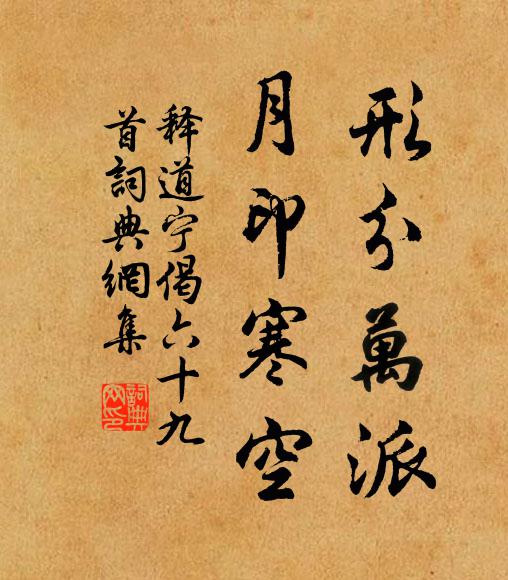 形分萬派
月印寒空
释道宁偈六十九
首詞典網集
詞典
网印